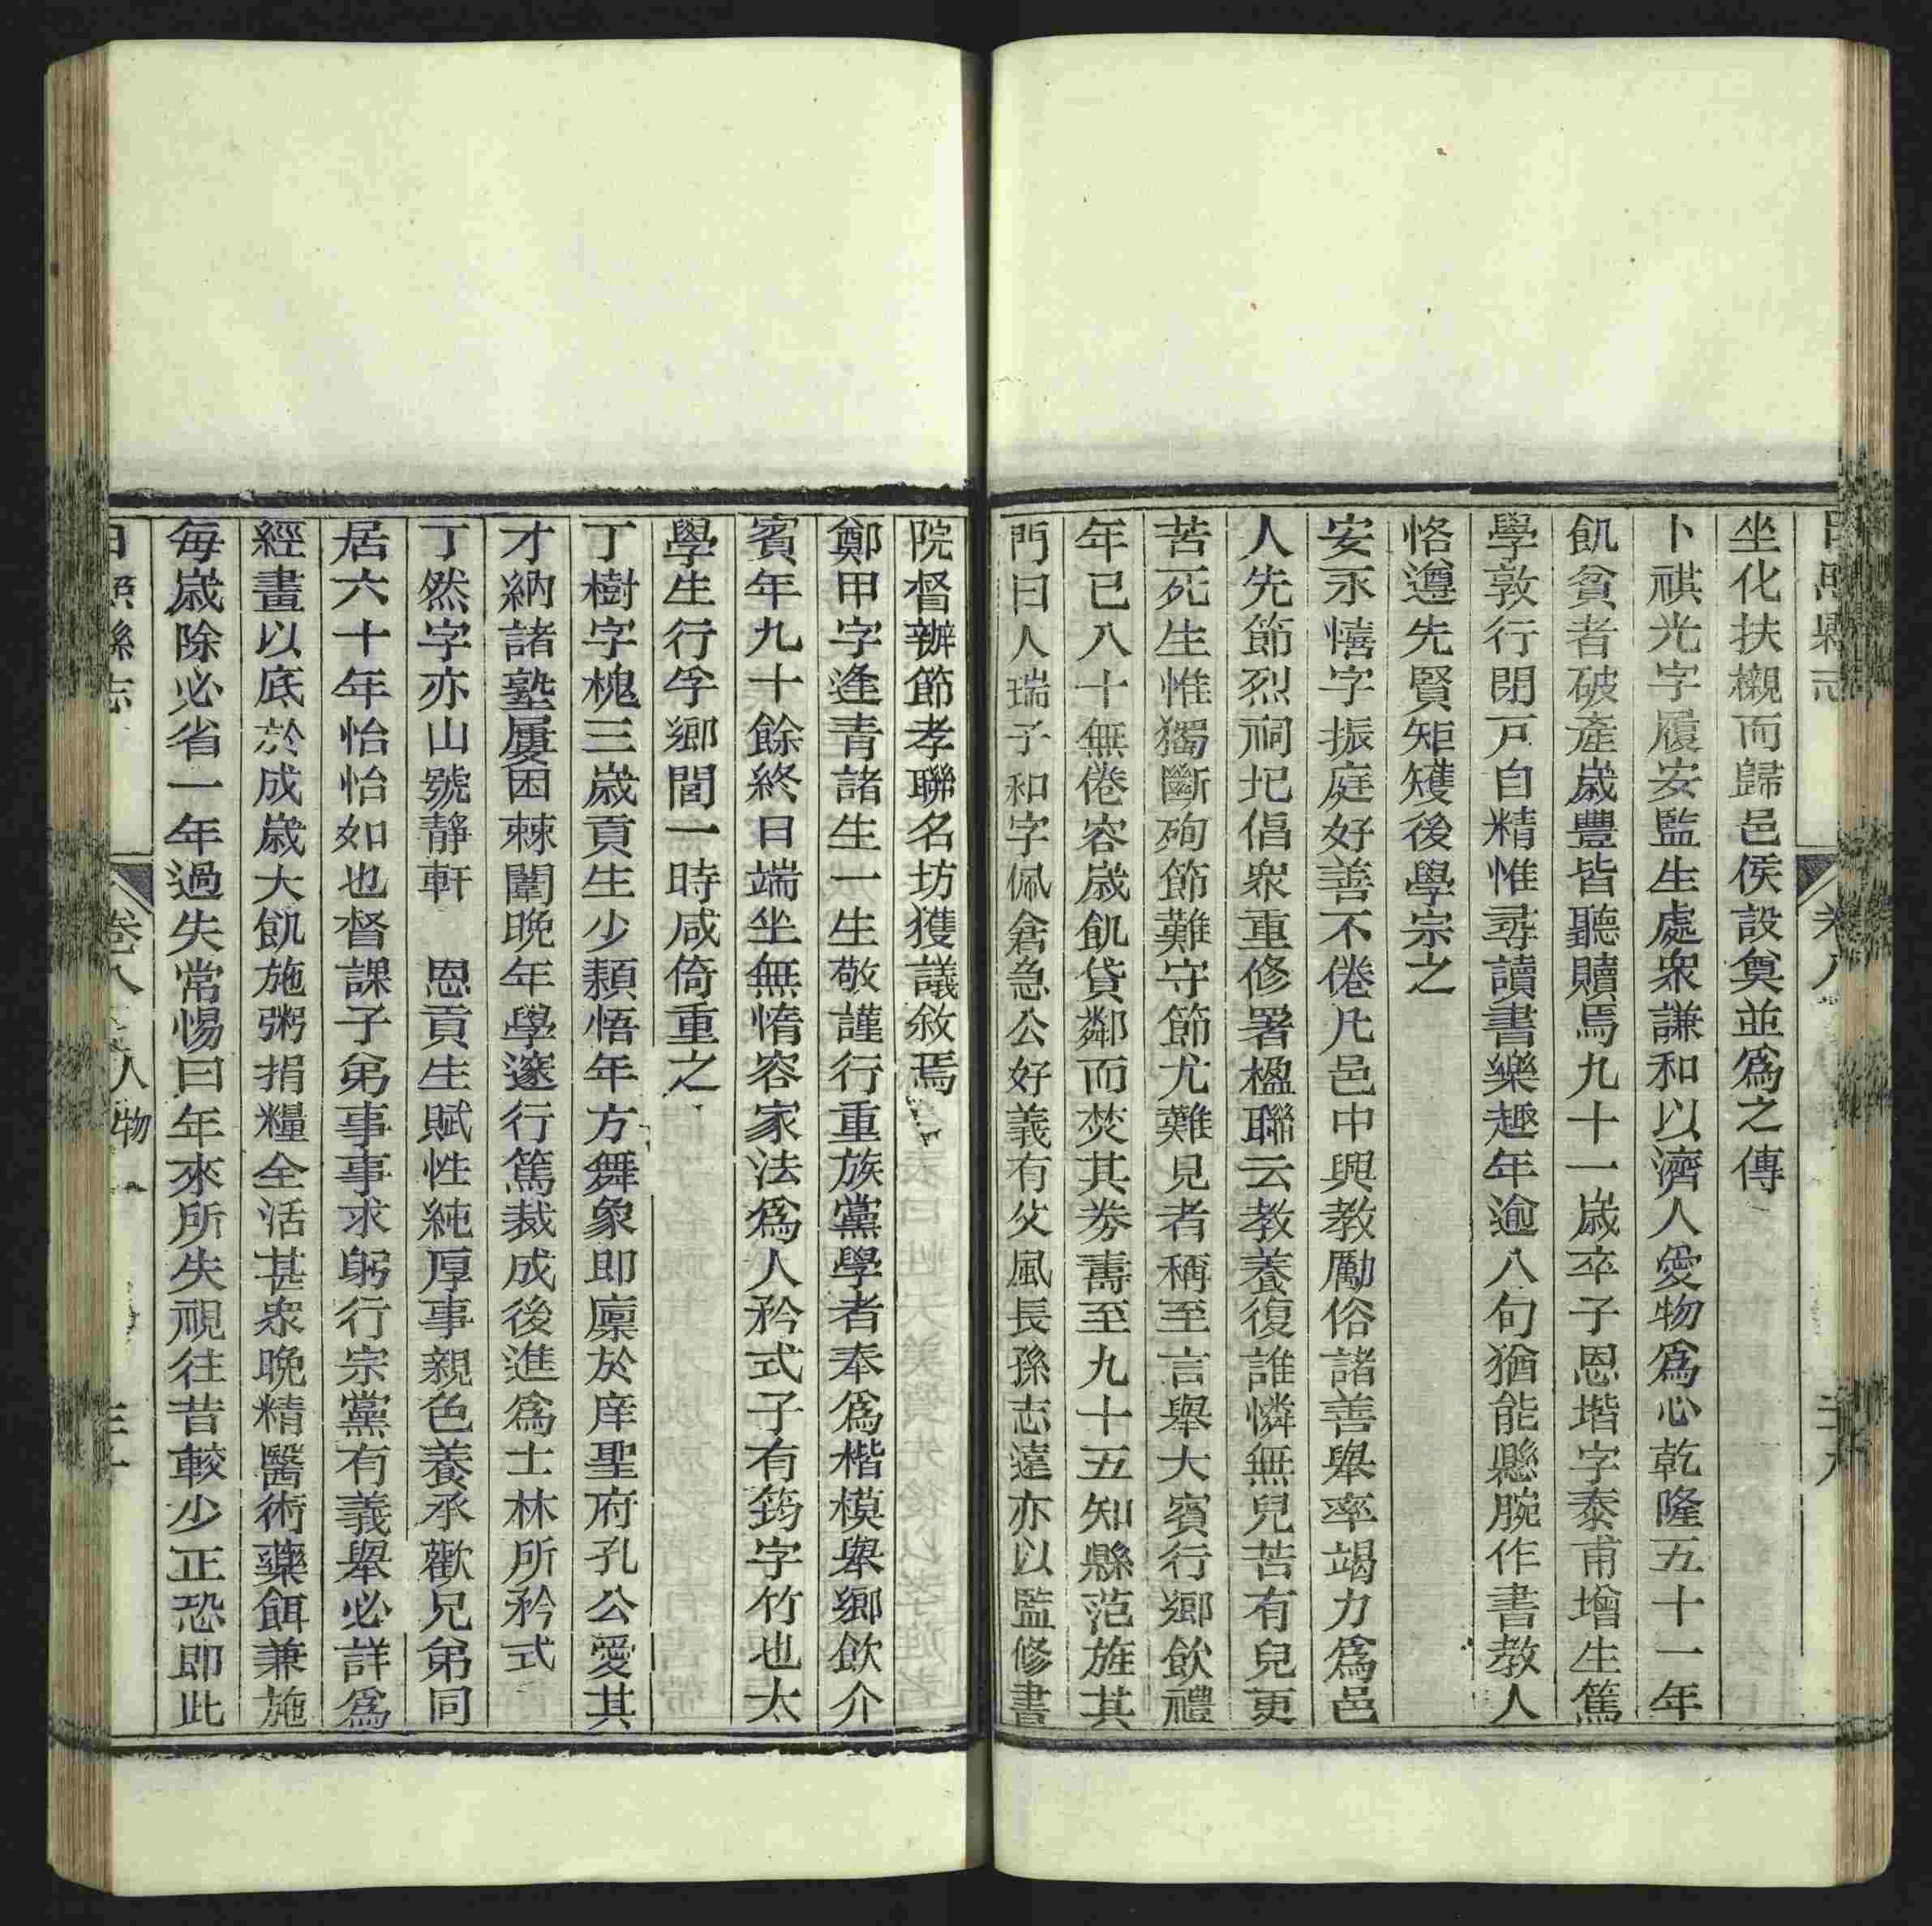 日照縣志 卷八
坐化扶櫬而歸邑侯設奠並為之傳
卜祺光字履安監生處眾謙和以濟人愛物為心乾隆五十一年
飢貧者破產歲豐皆聽贖焉九十一歲卒子恩堦字泰甫增生篤
學敦行閉戸自精惟尋讀書樂趣年逾八旬猶能懸腕作書教人
恪遵先賢矩矱後學宗之
安永僖字振庭好善不倦凡邑中興教勵俗諸善舉率竭力為邑
人先節烈祠圮倡眾重修署楹聯云教養復誰憐無兒苦有兒更
苦死生惟獨斷殉節難守節尤難見者稱至言舉大賓行鄉飲禮
年已八十無倦容歲飢貸鄰而焚其劵壽至九十五知縣范旌其
門曰人瑞子和字佩倉急公好義有父風長孫志遠亦以監修書
院督辦節孝聯名坊獲議敘焉
鄭甲字逢青諸生一生敬謹行重族黨學者奉為楷模舉鄉飲介
賓年九十餘終日端坐無惰容家法為人矜式子有筠字竹也太
學生行孚鄉閭一時咸倚重之
丁樹字槐三歲貢生少頴悟年方舞象即廩於庠聖府孔公愛其
才納諸塾屢困棘闈晚年學邃行篤裁成後進為士林所矜式
丁然字亦山號靜軒 恩貢生賦性純厚事親色養承歡兄弟同
居六十年怡怡如也督課子弟事事求躬行宗黨有義舉必詳為
經畫以底於成歲大飢施粥捐糧全活甚眾晚精醫術藥餌兼施
每歲除必省一年過失常惕曰年來所失視往昔較少正恐即此
日照縣志 卷八 人物